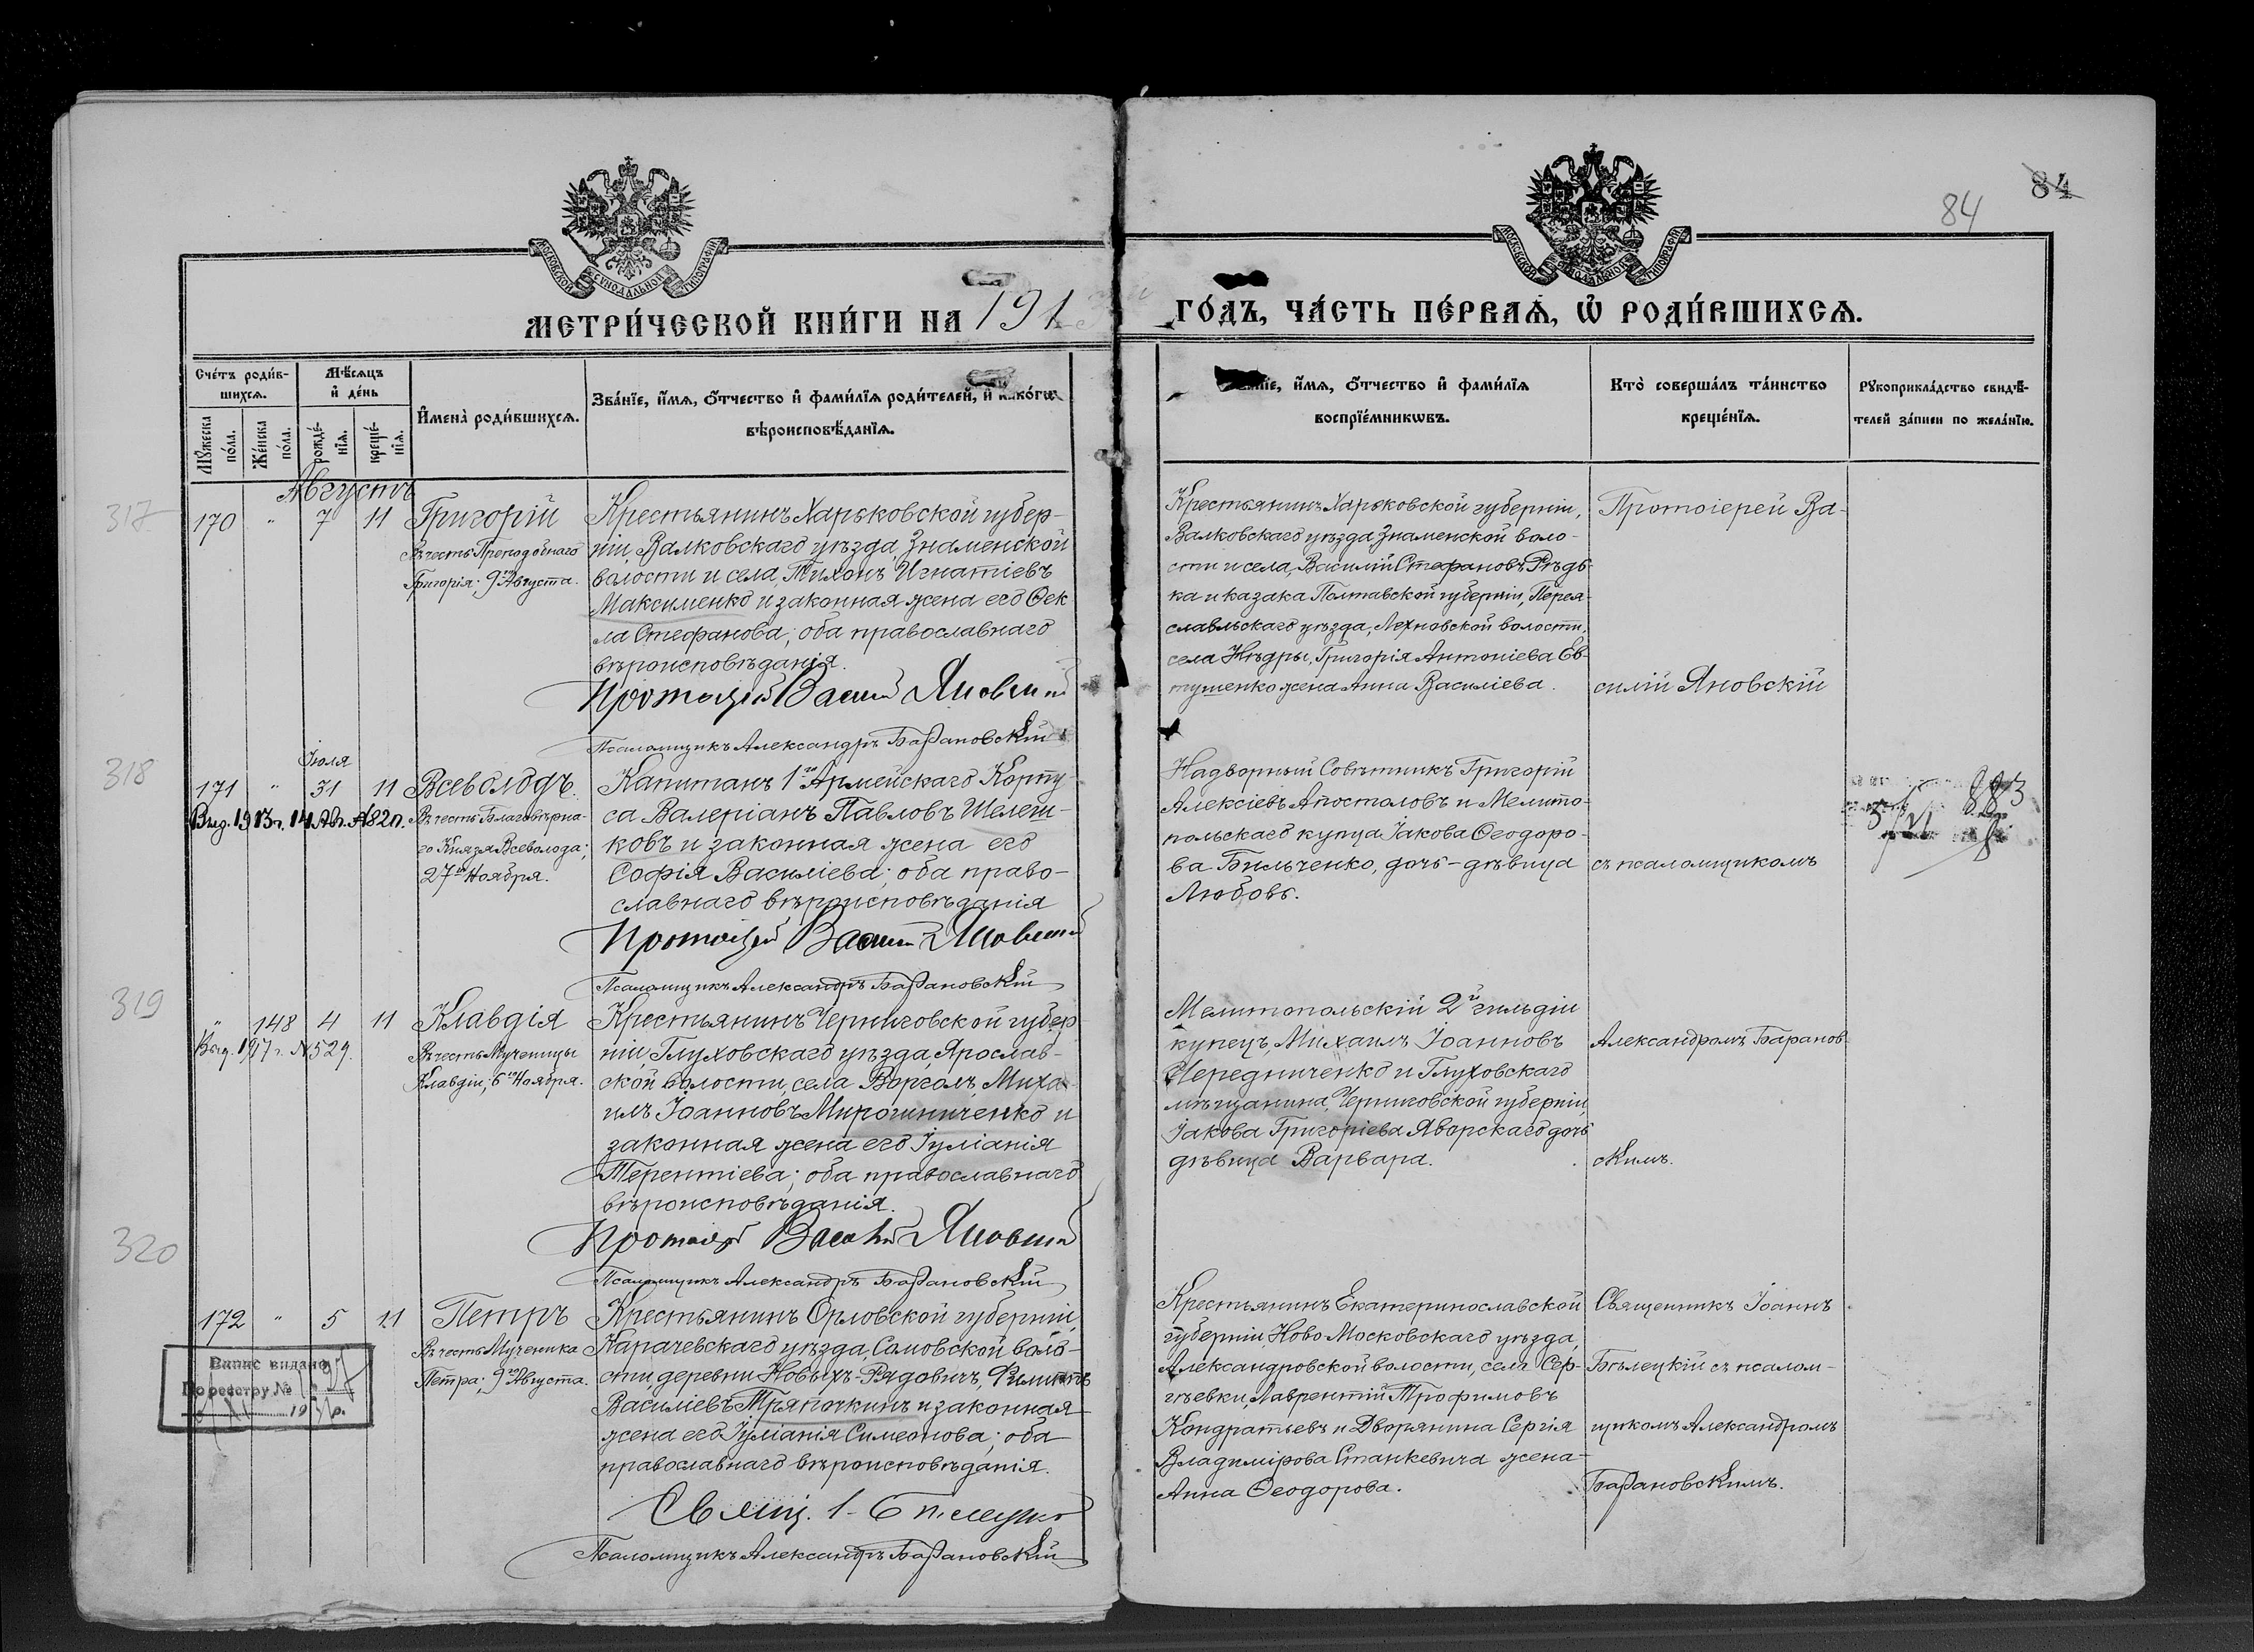 84
84
МОСКОВСКОЙ СѴНОДАЛЬНОЙ ТИПОГРАФІИ
МОСКОВСКОЙ СѴНОДАЛЬНОЙ ТИПОГРАФІИ
МЕТРИ́ЧЕСКОЙ КНИ́ГИ НА 191
ГО́ДЪ, ЧА́СТЬ ПЕ́РВАѦ, Ѿ РОДИ́ВШИХСѦ.
Сче́тъ роди́в-
шихсѧ.
Мꙋ́жеска
по́ла.
Же́нска
по́ла.
Мѣ́сѧцъ
и҆ де́нь
рожде́-
нїѧ.
креще́-
нїѧ.
И҆мена̀ роди́вшихсѧ.
Зва́нїе, и҆́мѧ, ѻ҆́тчество и҆ фами́лїѧ роди́телей, и҆ како́гѡ
вѣроисповѣ́данїѧ.
и҆́мѧ, ѻ҆́тчество и҆ фами́лїѧ
воспрїе́мникѡвъ.
Кто̀ соверша́лъ та́инство
креще́нїѧ.
Рꙋкоприкла́дство свидѣ́-
телей за́писи по жела́нїю.
317
Августъ
170 " 7 11
Григорій
Въ честь Преподобнаго
Григорія; 9го Августа.
Крестьянинъ Харьковской губер-
ніи, Валковскаго уѣзда, Знаменской
волости и села, Тихонъ Игнатіевъ
Максименко и законная жена его Ѳек
ла Стефанова; оба православнаго
вѣроисповѣданія.
Протоіерей Василій Яновскій
Псаломщикъ Александръ Барановскій
Крестьянинъ Харьковской губерніи,
Валковскаго уѣзда Знаменской воло-
сти и села, Василій Стефановъ Рѣдь-
ка и казака Полтавской губерніи, Перея-
славльскаго уѣзда, Лехновской волости,
села Нѣдры, Григорія Антоніева Ев-
тушенко жена Анна Василіева.
Протоіерей Ва-
силій Яновскій
318
Іюля
171 " 31 11
Выд. 1913 г. 14 Авг. №820.
Всеволодъ.
Въ честь Благовѣрна-
го Князя Всеволода;
27го Ноября.
Капитанъ 1го Армейскаго Корпу-
са Валеріанъ Павловъ Шелеш-
ковъ и законная жена его
Софія Василіева; оба право-
славнаго вѣроисповѣданія
Протоіерей Василій Яновскій
Псаломщикъ Александръ Барановскій
Надворный Совѣтникъ Григорій
Алексіевъ Апостоловъ и Мелито-
польскаго купца Іакова Ѳеодоро-
ва Бильченко, дочь-дѣвица
Любовь.
съ псаломщикомъ
883
319
" 148 4 11
Выд. 1917 г. №529.
Клавдія
Въ честь Мученицы
Клавдіи; 6го Ноября.
Крестьянинъ Черниговской губер
ніи, Глуховскаго уѣзда, Ярослав-
ской волости, села Воргола, Миха-
илъ Іоанновъ Мирошниченко и
законная жена его Іуліанія
Терентіева; оба православнаго
вѣроисповѣданія.
Протоіерей Василій Яновскій
Псаломщикъ Александръ Барановскій
Мелитопольскій 2й гильдіи
купецъ, Михаилъ Іоанновъ
Чередниченко и Глуховскаго
мѣщанина, Черниговской губерніи,
Іакова Григоріева Яворскаго дочь
дѣвица Варвара.
Александромъ Баранов
скимъ.
320
172 " 5 11
Випис видано
По реєстру №
19 р.
Петръ
Въ честь Мученика
Петра; 9го Августа.
Крестьянинъ Орловской губерніи,
Карачевскаго уѣзда, Самовской воло-
сти, деревни Новыхъ-Рядовичъ, Филиппъ
Василіевъ Тряпочкинъ и законная
жена его Іуліанія Симеонова; оба
православнаго вѣроисповѣданія.
Свящ. І. Бѣлецкій
Псаломщикъ Александръ Барановскій
Крестьянинъ Екатеринославской
губерніи, Ново Московскаго уѣзда,
Александровской волости, села Сер-
гѣевки, Лаврентій Трофимовъ
Кондратьевъ и Дворянина Сергія
Владимірова Станкевича жена
Анна Ѳеодорова.
Священникъ Іоаннъ
Бѣлецкій съ псалом-
щикомъ Александромъ
Барановскимъ.